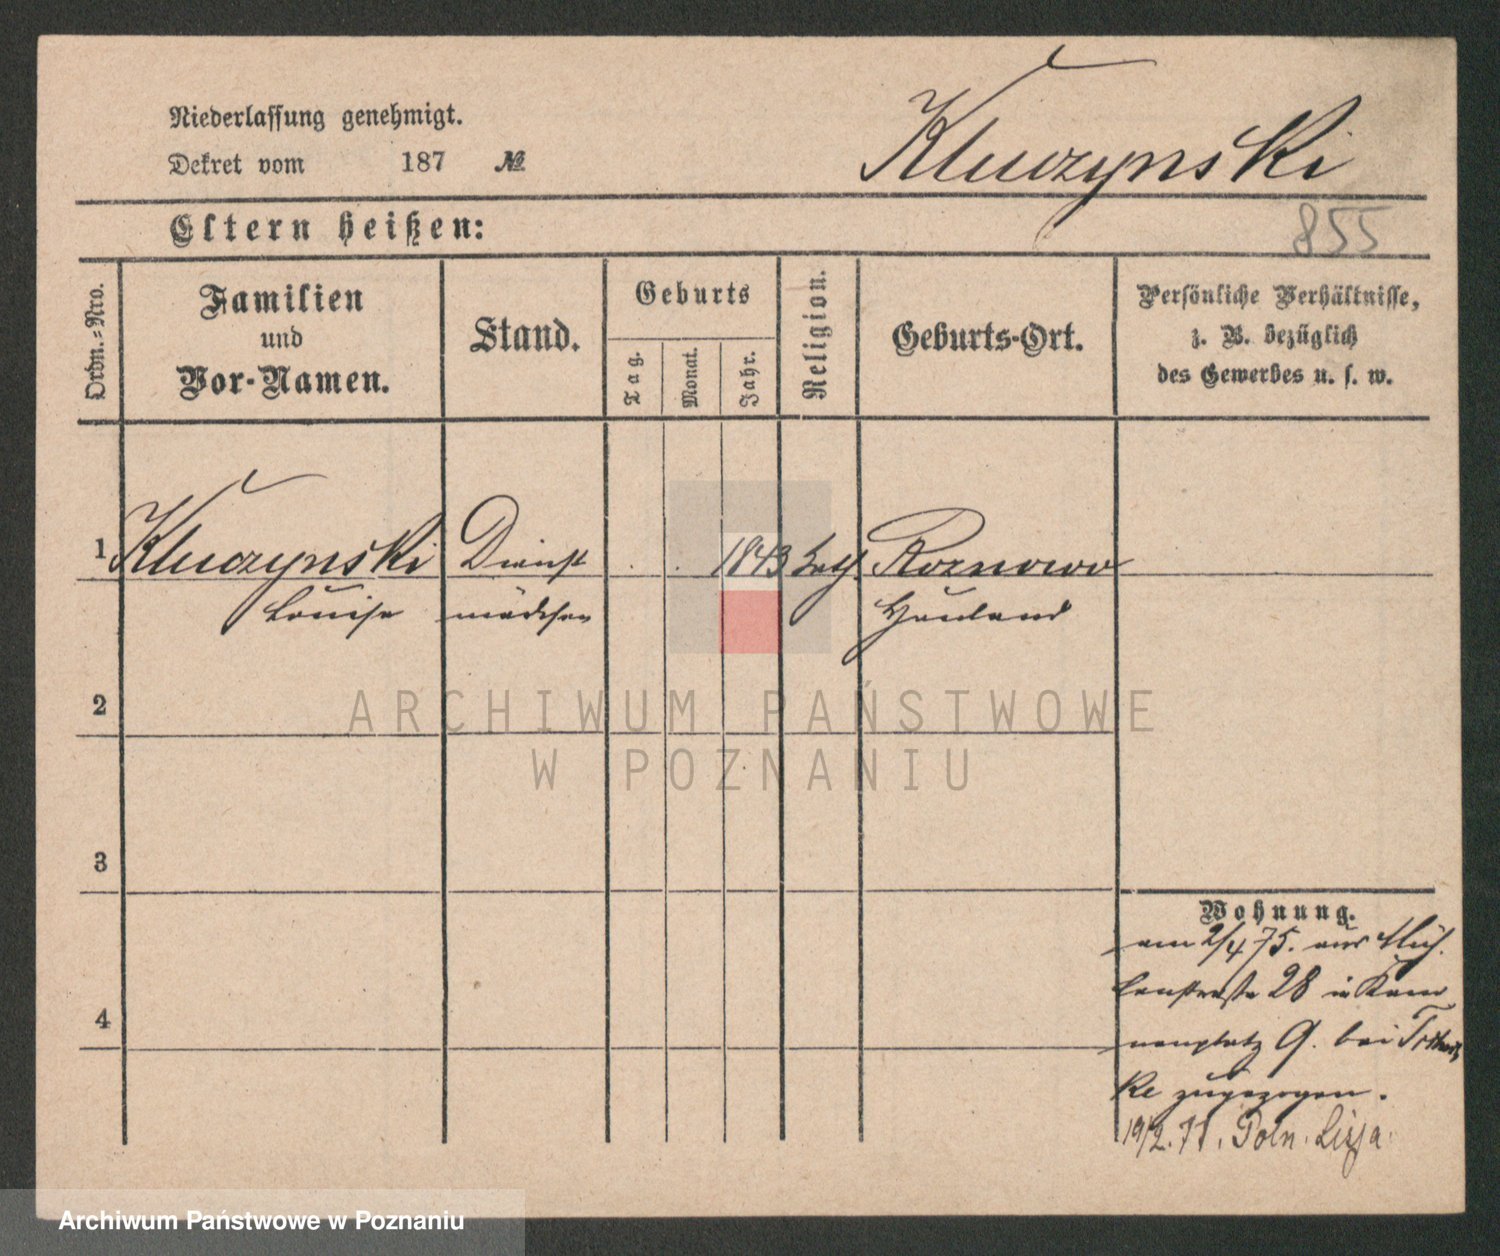 Niederlassung genehmigt.
Dekret vom 187 №
Kluczynski
Eltern heißen:
855
Ordn.=Nro.
Familien
und
Vor-Namen.
Stand.
Geburts
Tag.
Monat.
Jahr.
Religion.
Geburts-Ort.
Persönliche Verhältnisse,
z. B. bezüglich
des Gewerbes u. s. w.
1 Kluczynski Dienst . . 1843 kath. Roznowo
Louise mädchen Hauland
2
3
Wohnung.
am 2/4 75. aus Müh
lenstraße 28 in Kano
4
nenplatz 9. bei
ke zugezogen.
19/2. 77. Poln. Lissa.
ARCHIWUM PAŃSTWOWE
W POZNANIU
Archiwum Państwowe w Poznaniu